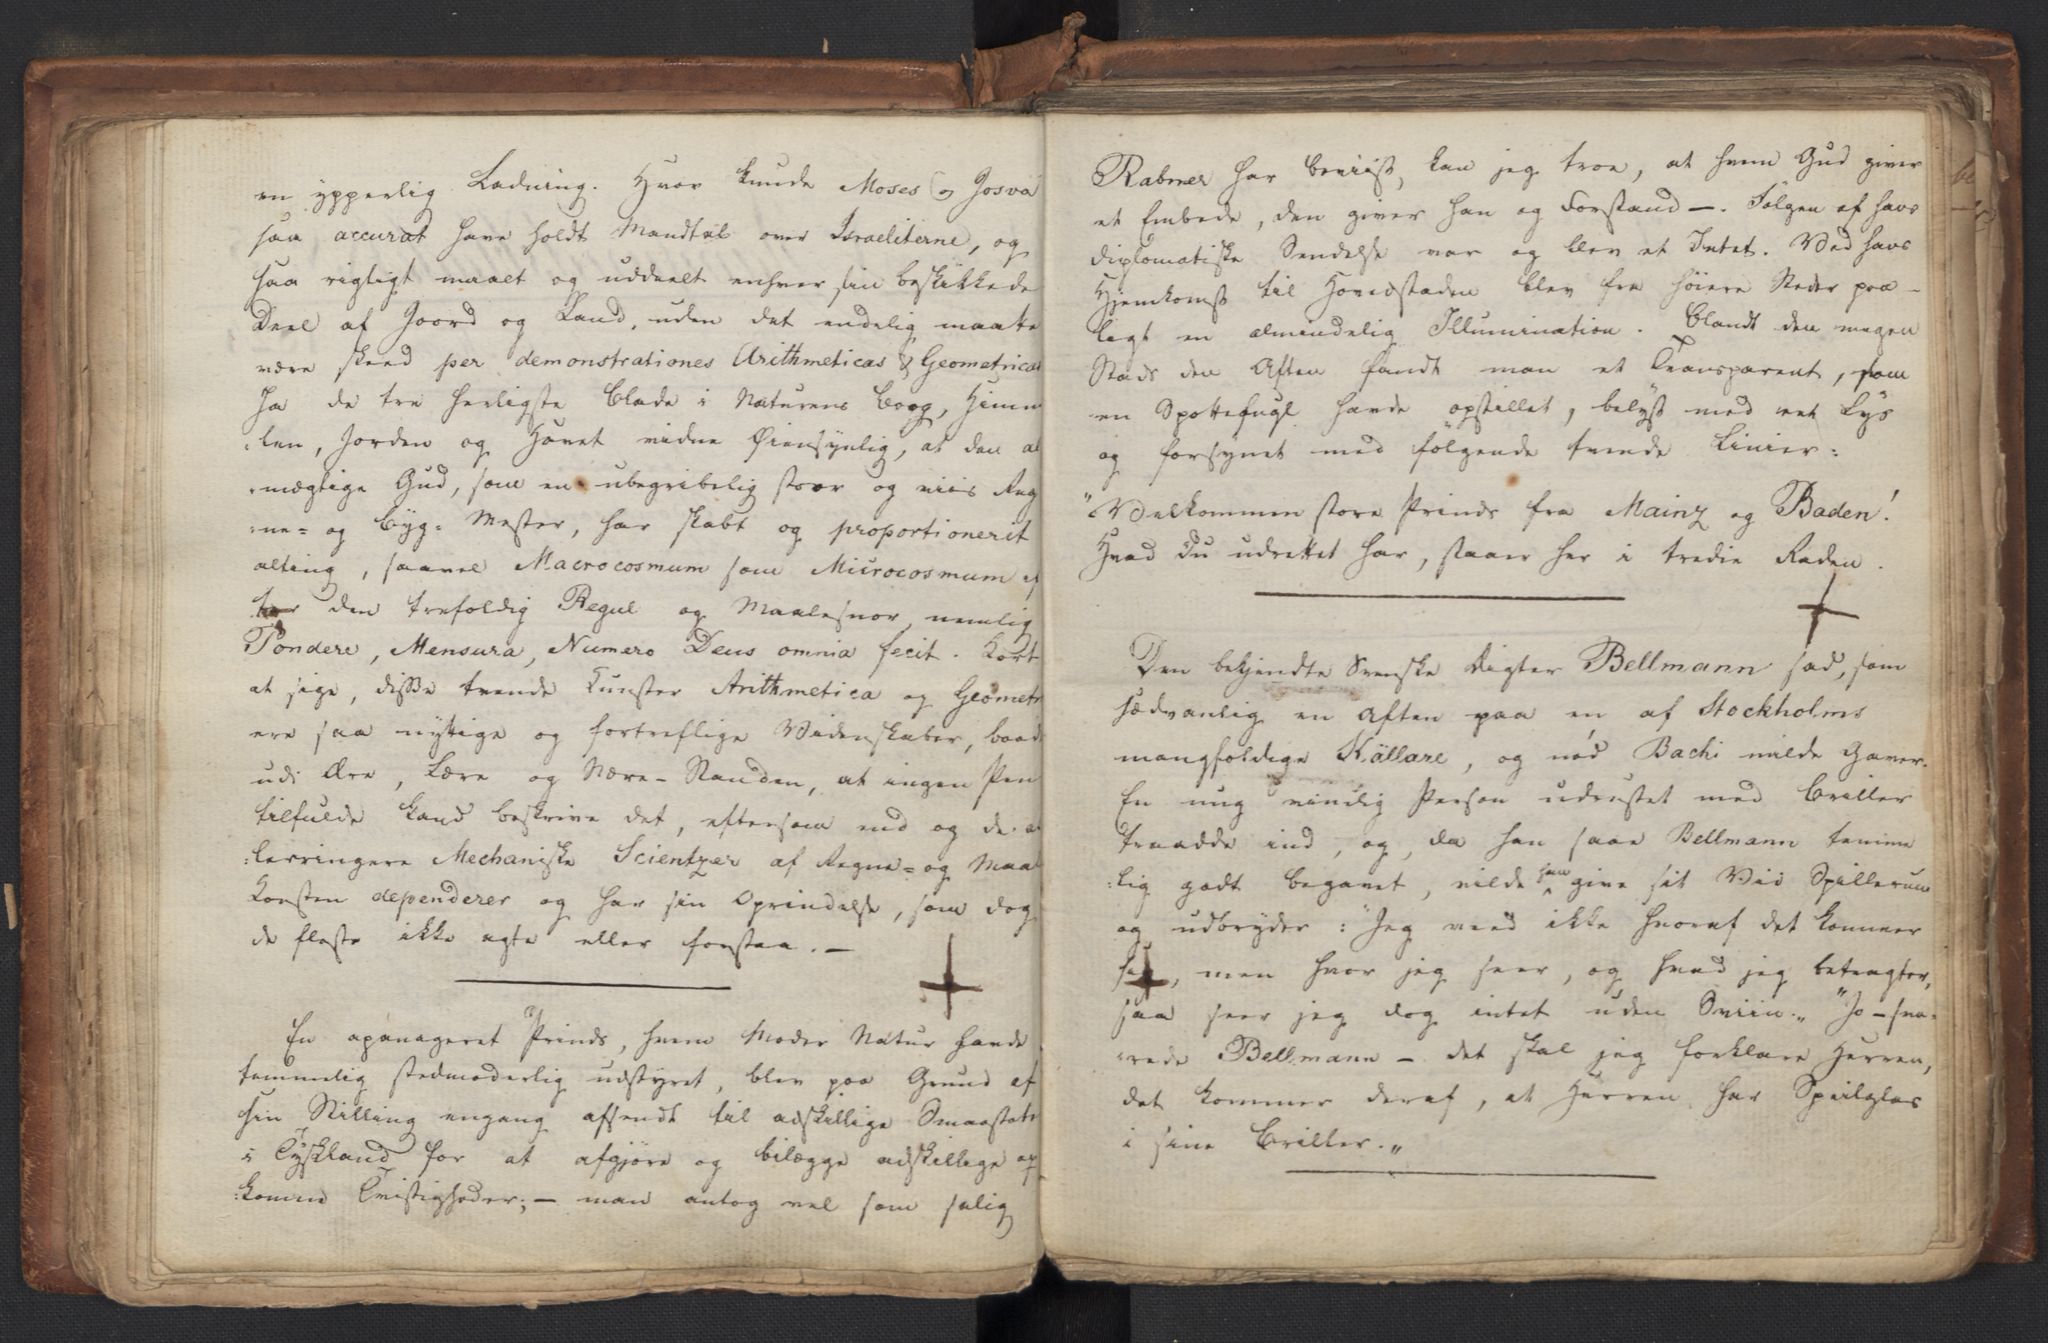 en ypperlig Ladning. Hvor kunde Moses og Josva
saa accurat have holdt Mandtal over Israeliterne, og
saa rigtigt maalt og uddeelt enhver sin beskikkede
Deel af Joord og Land, uden det endelig maatte
være skeed per demonstrationes Arithmeticas & Geometricas
Ja de tre herligste Blade i Naturens Boog, Him̅
:len, Jorden og Havet vidne Øiensynlig, at den al
:mægtige Gud, som en ubegribelig stoor og viis Reg
:ne= og Byg= Mester, har skabt og proportioneret
alting, saavel Macrocosmum som Microcosmum ef
ter den trefoldig Regul og Maalesnor, nemlig
Pondere, Mensura, Numero Deus omnia fecit. Kort
at sige, disse tvende Kunster Arithmetica og Geometr
ere saa nyttige og fortreflige Videnskaber, baade
udi Ære, Lære og Nære-Standen, at ingen Pen
tilfulde kand beskrive det, eftersom end og de al
:lerringere Mechaniske Scientzer af Regne= og Maal
Konsten dependerer og har sin Oprindelse, som dog
de fleste ikke agte eller forstaa. —
En apanageret Prinds, hvem Moder Natur havde
temmelig stedmoderlig udstyret, blev paa Grund af
sin Stilling engang afsendt til adskillige Smaastater
i Tyskland for at afgjøre og bilægge adskillige op
:komne Tvistigheder; — man antog vel som salig
Rabner har beviist, kan jeg troe, at hvem Gud giver
et Embede, den giver han og Forstand —. Følgen af hans
diplomatiske Sendelse var og blev et Intet. Ved hans
Hjemkomst til Hovedstaden blev fra høiere Steder paa-
lagt en almindelig Illumination. Blandt den megen
Stads den Aften fandt man et Transparent, som
en Spottefugl havde opstillet, belyst med eet Lys
og forsynet med følgende tvende Linier:
"Velkommen store Prinds fra Mainz og Baden!
Hvad Du udrettet har, staaer her i tredie Raden.
Den bekjendte Svenske Digter Bellmann sad, som
sædvanlig en Aften paa en af Stockholms
mangfoldige Källare, og nød Bachi milde Gaver.
En nug vindig Person udrustet med Briller
traadde ind, og, da han saae Bellmann temme
:lig godt begavet, vilde han give sit Vid Spillerum
og udbryder: "Jeg veed ikke hvoraf det kommer
sig, men hvor jeg seer, og hvad jeg betragter,
saa seer jeg dog intet uden Sviin." "Jo – sva-
:rede Bellmann – det skal jeg forklare Herren,
det kommer deraf, at Herren har Speilglas
i sine Briller."